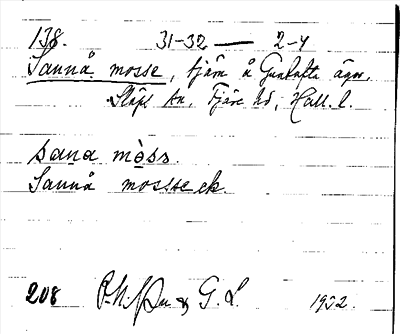 138. 31-32 — 2-4
Sannå mosse, tjärn å Guntofta ägor,
Släps sn, Fjäre hd, Hall. l.
sana mòss.
Sannå mosse ek.
208 & G. L. 1932